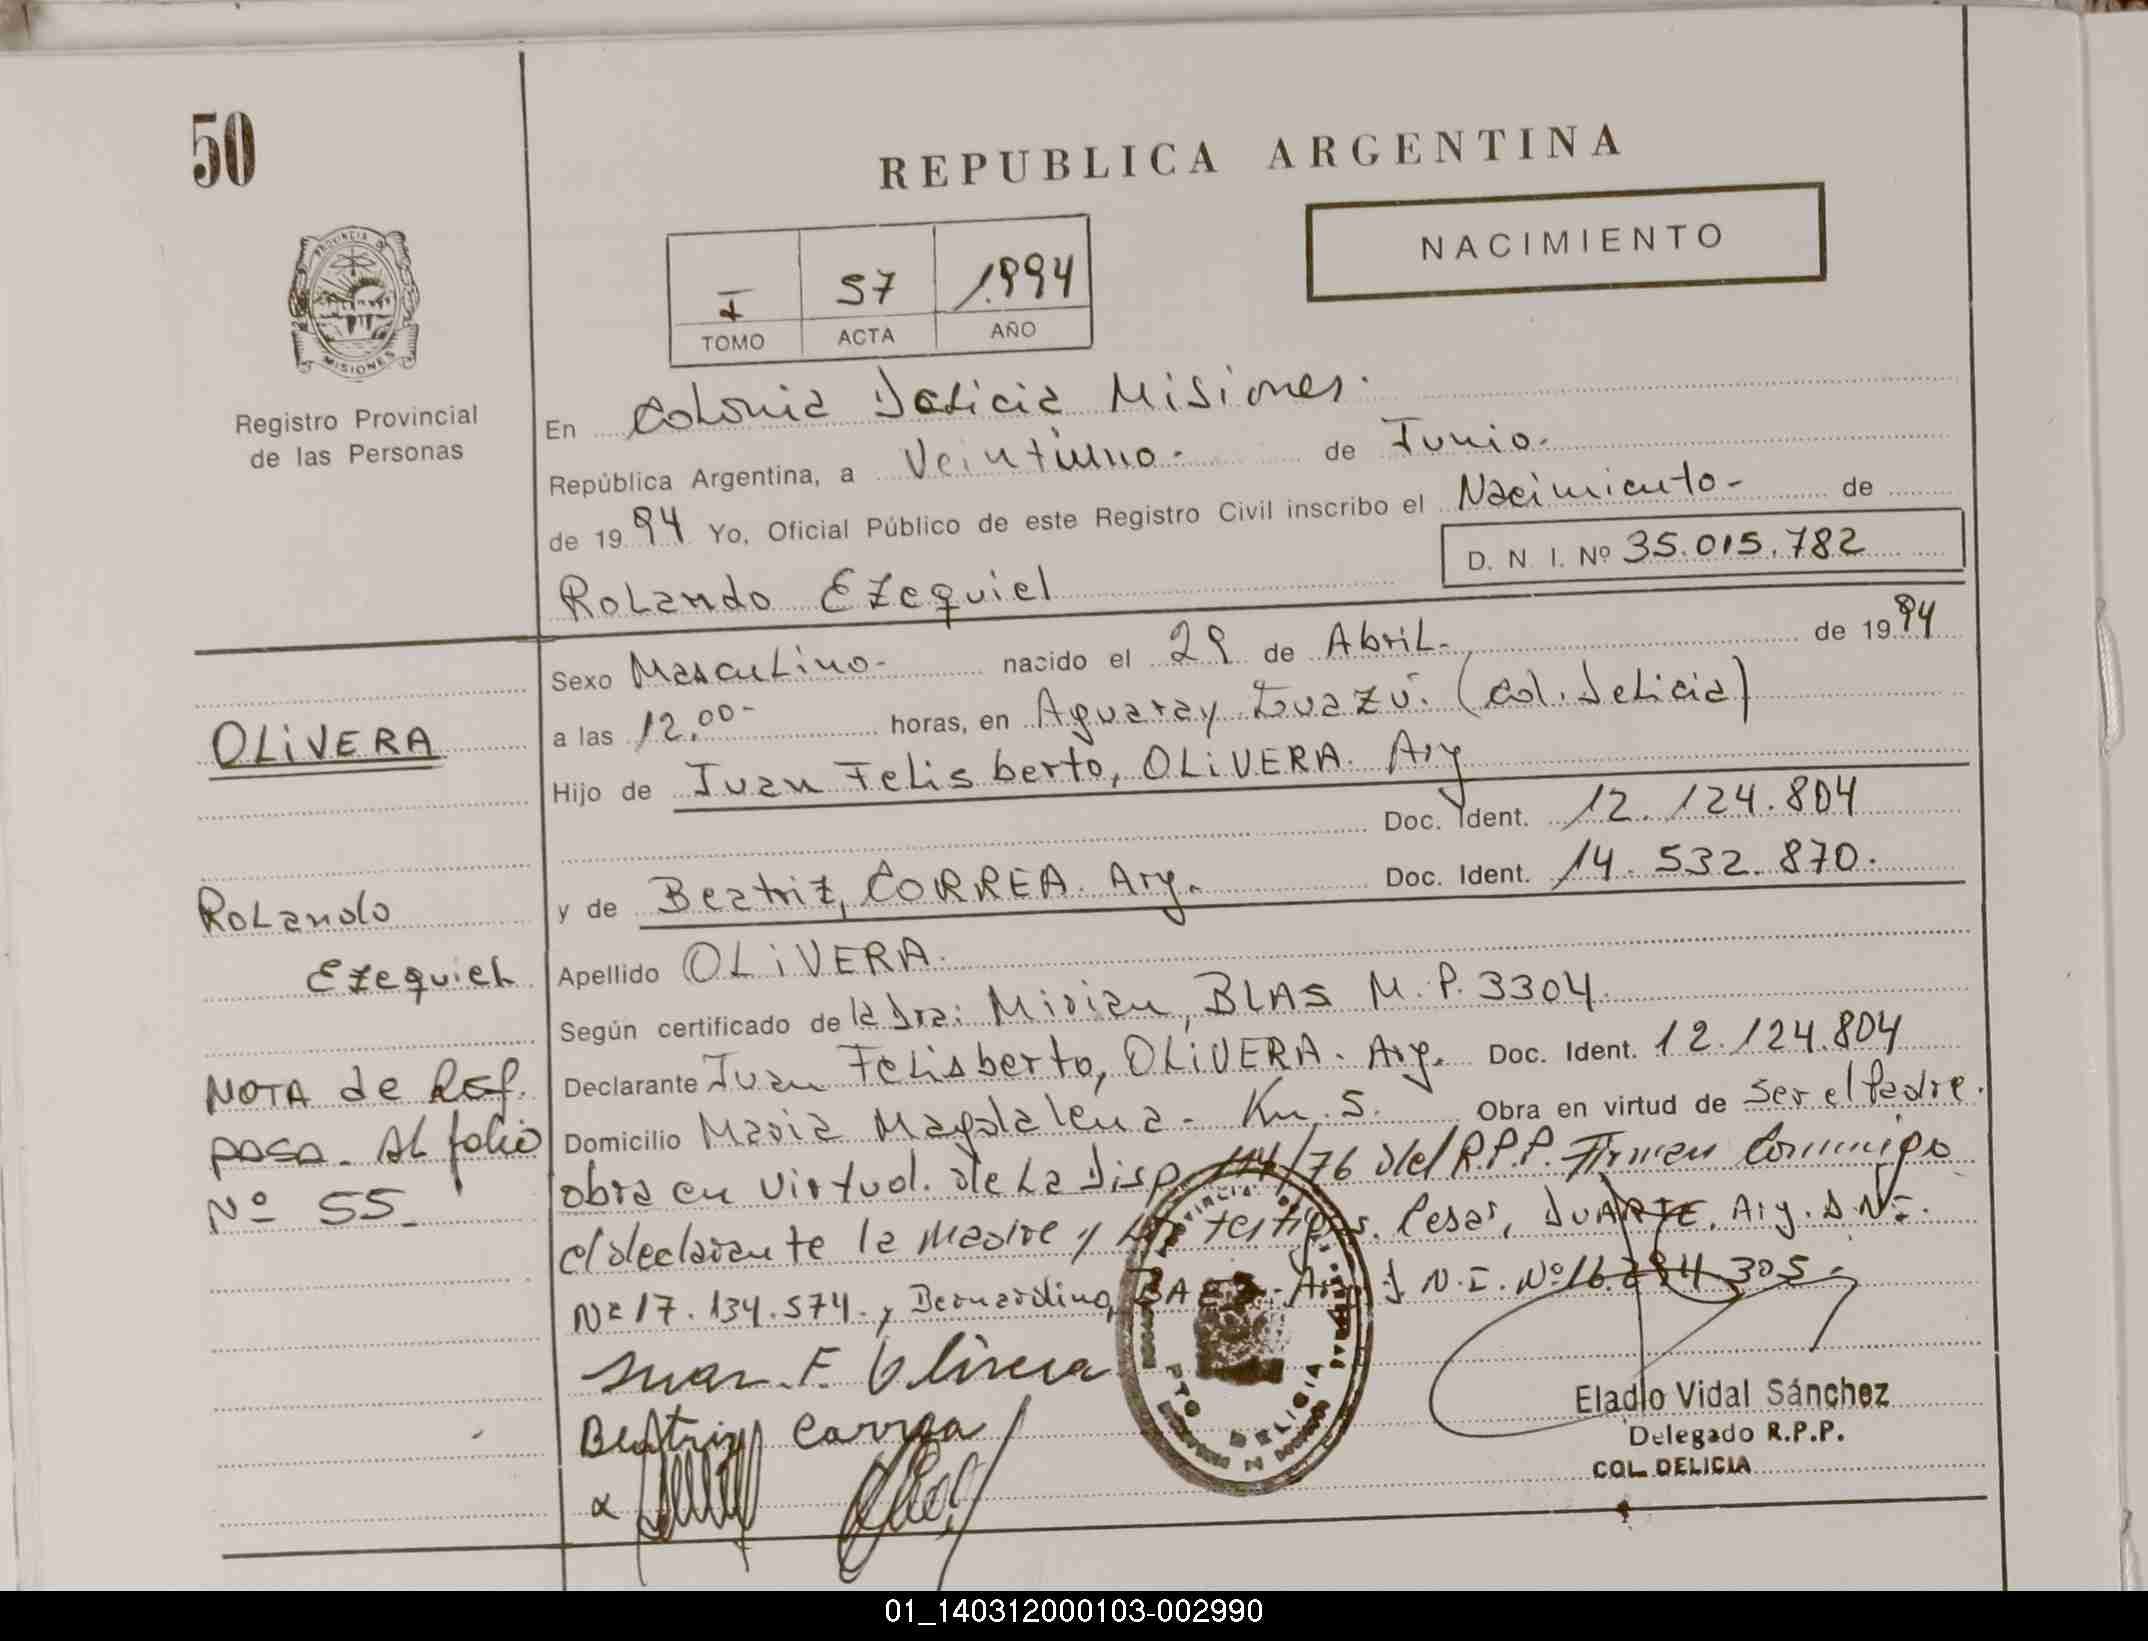 50
REPUBLICA ARGENTINA
NACIMIENTO
I 57 1.994
TOMO ACTA AÑO
PROVINCIA DE
MISIONES
Registro Provincial
de las Personas
En Colonia Delicia Misiones.
República Argentina, a Veintiuno - de Junio -
de 19 94 Yo, Oficial Público de este Registro Civil inscribo el Nacimiento - de
D. N. I. Nº 35.015.782
Rolando Ezequiel
Sexo Masculino - nacido el 29 de Abril - de 19 94
a las 12.00 - horas, en Aguaray Guazú. (Col. Delicia)
Hijo de Juan Felisberto, OLIVERA. Arg
Doc. Ident. 12.124.804
y de Beatriz, CORREA. Arg. Doc. Ident. 14.532.870.
Apellido OLIVERA.
Según certificado de la Dra: Mirian, BLAS M.P. 3304.
Declarante Juan Felisberto, OLIVERA. Arg. Doc. Ident. 12.124.804
Domicilio Maria Magdalena - Km. 5. Obra en virtud de ser el Padre.
obra en virtud. de La Disp. /76 del R.P.P. Firman Conmigo
el declarante la madre y testigos. Cesar, DUARTE. Arg. D.N.I.
Nº 17.134.574., Bernardino, D.N.I. Nº 16. 305 -
Juan. F. Olivera
Beatriz Correa
Eladio Vidal Sánchez
Delegado R.P.P.
COL. DELICIA
PTO DELICIA
OLIVERA
Rolando
Ezequiel
NOTA de REF.
PASA - AL folio
Nº 55 -
01_140312000103-002990